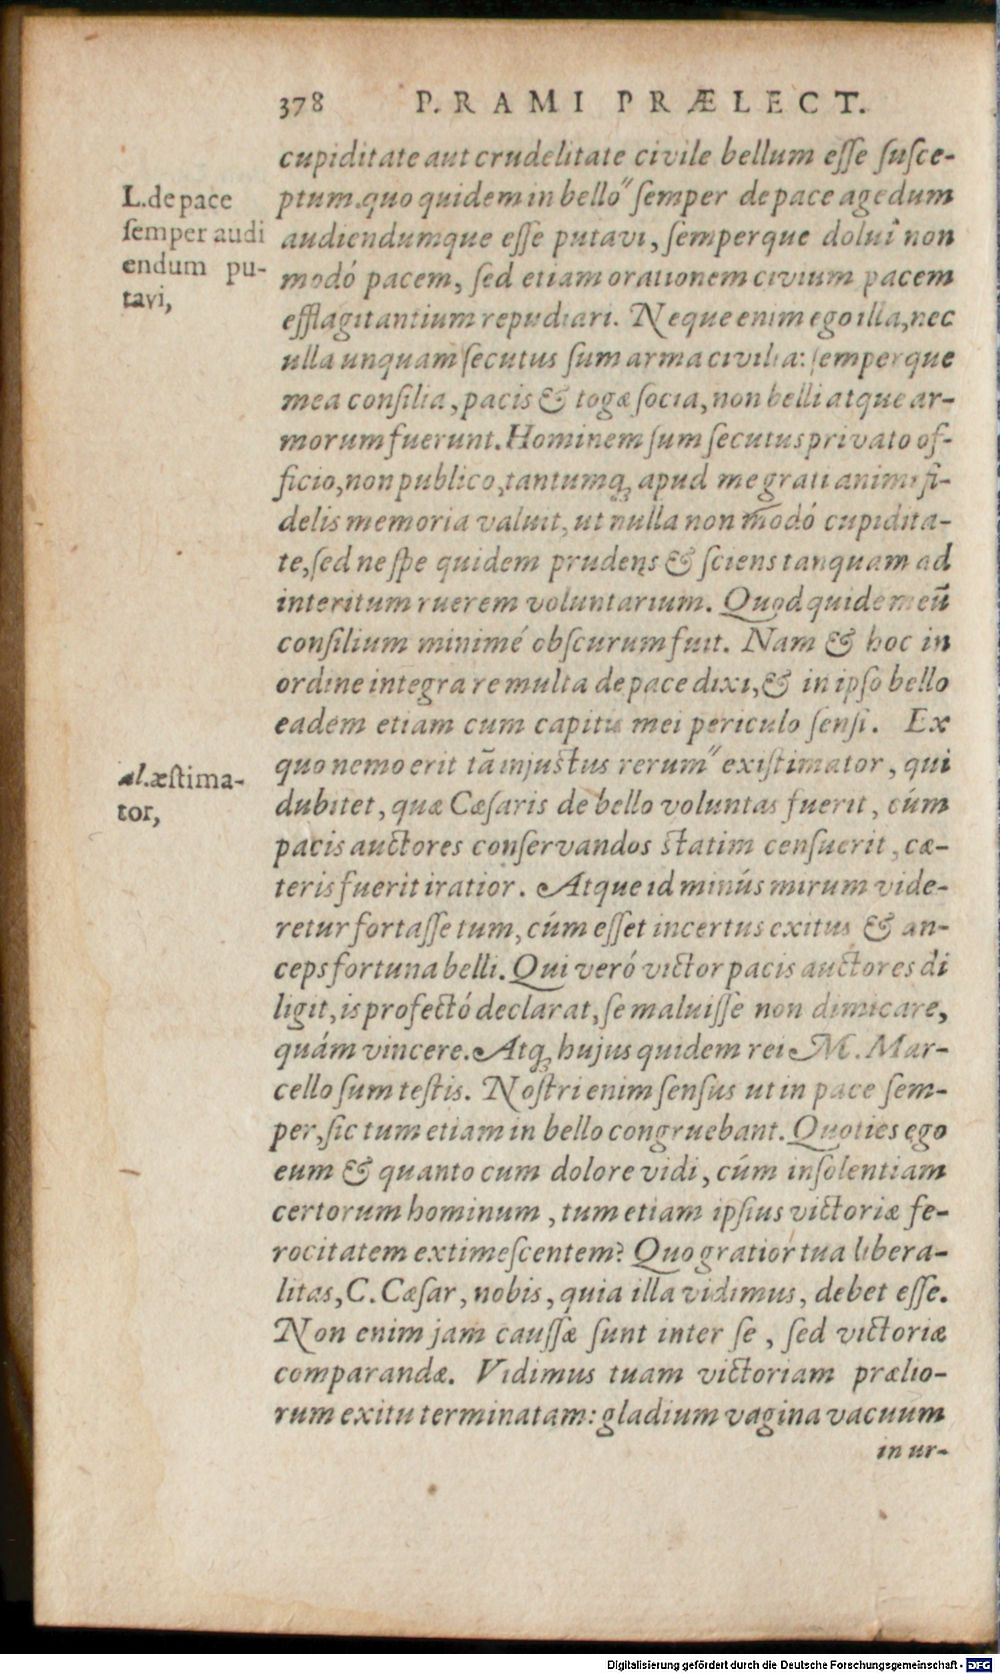 378 P. RAMI PRÆLECT.
cupiditate aut crudelitate civile bellum esse susce-
ptum. quo quidem in bello" semper de pace agedum
audiendumque esse putavi, semperque dolui non
modó pacem, sed etiam orationem civium pacem
efflagitantium repudiari. Neque enim ego illa, nec
ulla unquam secutus sum arma civilia: semperque
mea consilia, pacis & togæ socia, non belli atque ar-
morum fuerunt. Hominem sum secutus privato of-
ficio, non publico, tantumq; apud me grati animi fi-
delis memoria valuit, ut nulla non modó cupidita-
te, sed ne spe quidem prudens & sciens tanquam ad
interitum ruerem voluntarium. Quod quidem meū
consilium minimé obscurum fuit. Nam & hoc in
ordine integra re multa de pace dixi, & in ipso bello
eadem etiam cum capitis mei periculo sensi. Ex
quo nemo erit tā injustus rerum" existimator, qui
dubitet, quæ Cæsaris de bello voluntas fuerit, cúm
pacis auctores conservandos statim censuerit, cæ-
teris fuerit iratior. Atque id minús mirum vide-
retur fortasse tum, cúm esset incertus exitus & an-
ceps fortuna belli. Qui veró victor pacis auctores di
ligit, is profectó declarat, se maluisse non dimicare,
quám vincere. Atq; hujus quidem rei M. Mar-
cello sum testis. Nostri enim sensus ut in pace sem-
per, sic tum etiam in bello congruebant. Quoties ego
eum & quanto cum dolore vidi, cúm insolentiam
certorum hominum, tum etiam ipsius victoriæ fe-
rocitatem extimescentem? Quo gratior tua libera-
litas, C. Cæsar, nobis, quia illa vidimus, debet esse.
Non enim jam caussæ sunt inter se, sed victoriæ
comparandæ. Vidimus tuam victoriam prælio-
rum exitu terminatam: gladium vagina vacuum
in ur-
L. de pace
semper audi
endum pu-
tavi,
al. æstima-
tor,
Digitalisierung gefördert durch die Deutsche Forschungsgemeinschaft - DFG